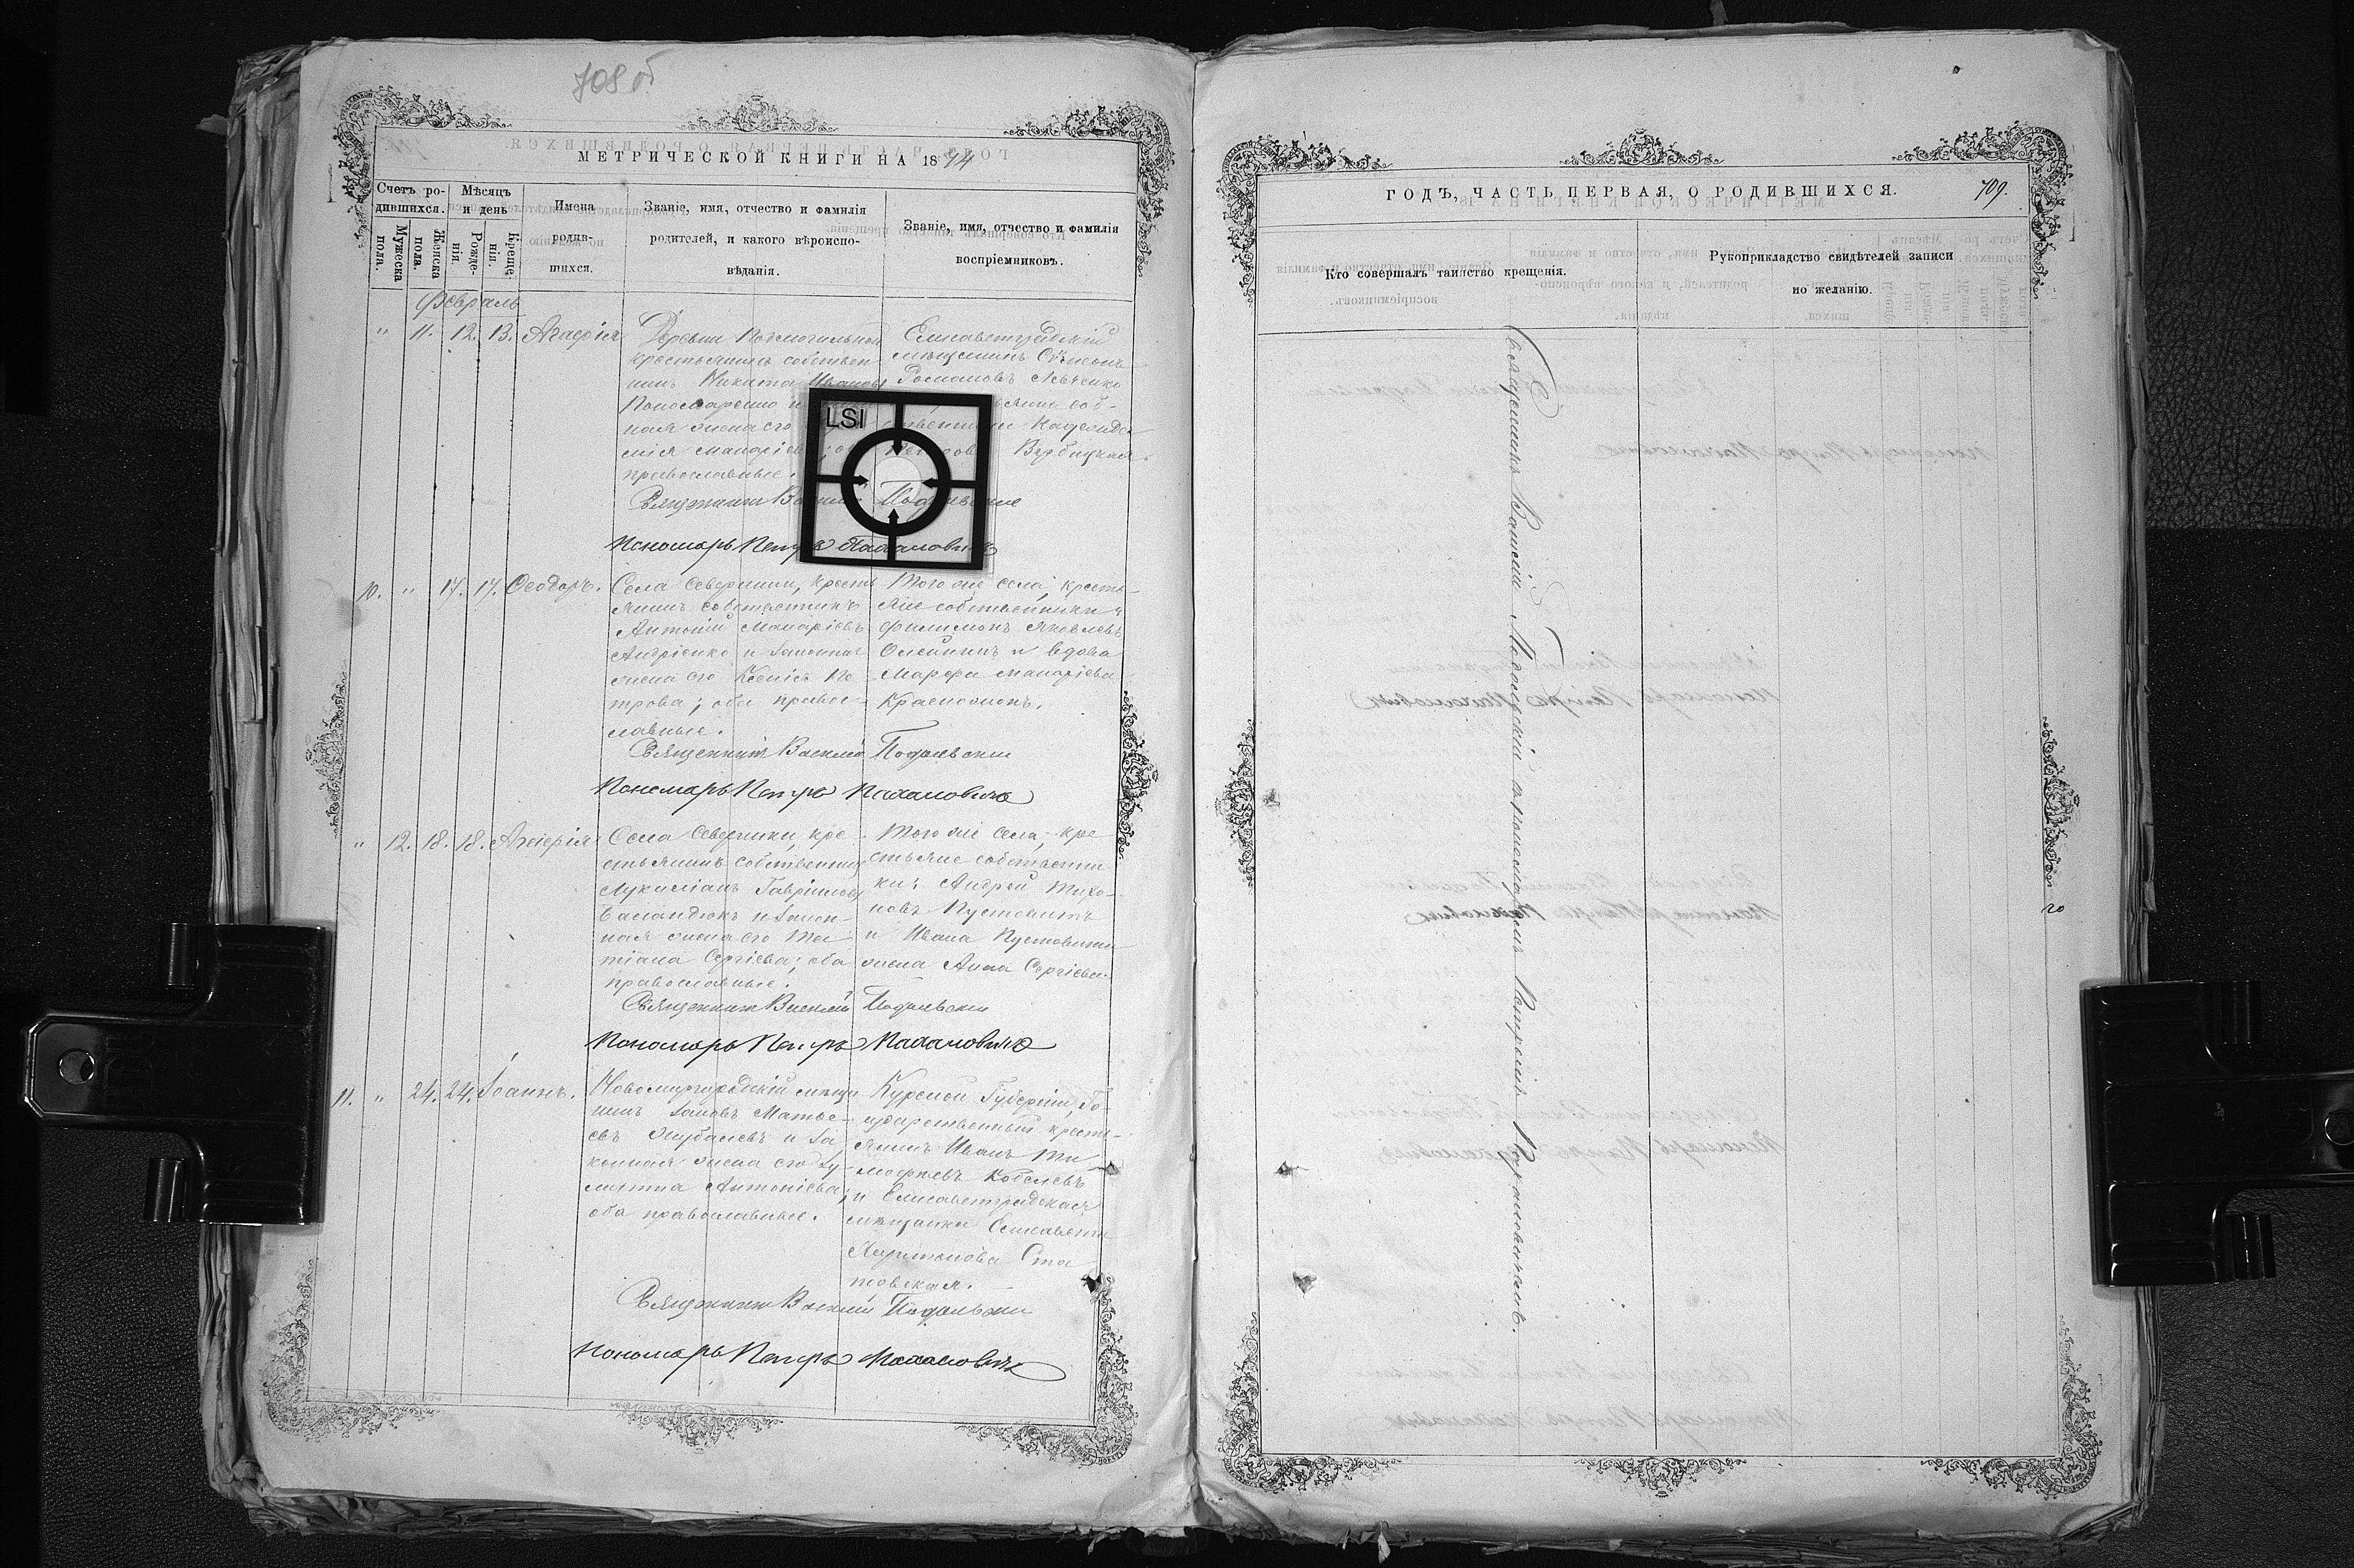 708 об
МЕТРИЧЕСКОЙ КНИГИ НА 1874
Счетъ ро-
дившихся.
Мѣсяцъ
и день
Имена
родив-
шихся.
Званіе, имя, отчество и фамилія
родителей, и какого вѣроиспо-
вѣданія.
Званіе, имя, отчество и фамилія
воспріемниковъ.
Мужеска
пола.
Женска
пола.
Рожде-
нія.
Креще-
нія.
Февраль
" 11. 12. 13. Агафія
Деревни
крестьянинъ собствен
никъ Никита Ивановъ
Пономаренко и
ная жена его
православные.
Елисаветградскій
мѣщанинъ Сѵмеонъ
Романовъ Левченко
Надежда
Вербицкая.
Священникъ Василій Подольскій
Пономарь Петръ Махаловичъ
10. " 17. 17. Ѳеодоръ.
Села Северинки, кресть
янинъ собственникъ
Антоній Макаріевъ
Андріенко и законная
жена его Ксенія Пе
трова; оба правос-
лавные.
Того же села, кресть-
яне собственники:
Филимонъ Яковлевъ
Олейникъ и вдова
Марфа Макаріева
Священникъ Василій Подольскій
Пономарь Петръ Махаловичъ
" 12. 18. 18.
Села Северинки, кре-
стьянинъ собственникъ
Лукиліанъ Гавріиловъ
и закон-
ная жена его Та
тіана Сергіева; оба
православные.
Того же села, кре
стьяне собственни
ки: Андрей Тихо-
новъ Пустовитъ
и Ивана Пустовита
жена Анна Сергіева.
Священникъ Василій Подольскій
Пономарь Петръ Махаловичъ
11. " 24. 24. Іоаннъ.
Новомиргородскій мѣща
нинъ Іаковъ Матѳе-
евъ и за
конная жена его
Антоніева;
оба православные.
Курской Губерніи, Го-
сударственный кресть-
янинъ Иванъ Ти
моѳеевъ Кобелевъ
и Елисаветградская
мѣщанка Елисавета
Харитонова
Священникъ Василій Подольскій
Пономарь Петръ Махаловичъ
LSI
ГОДЪ, ЧАСТЬ ПЕРВАЯ, О РОДИВШИХСЯ.
709.
Кто совершалъ таинство крещенія.
Рукоприкладство свидѣтелей записи
по желанію.
Священникъ Василій Подольскій съ пономаремъ Петромъ Махаловичемъ.